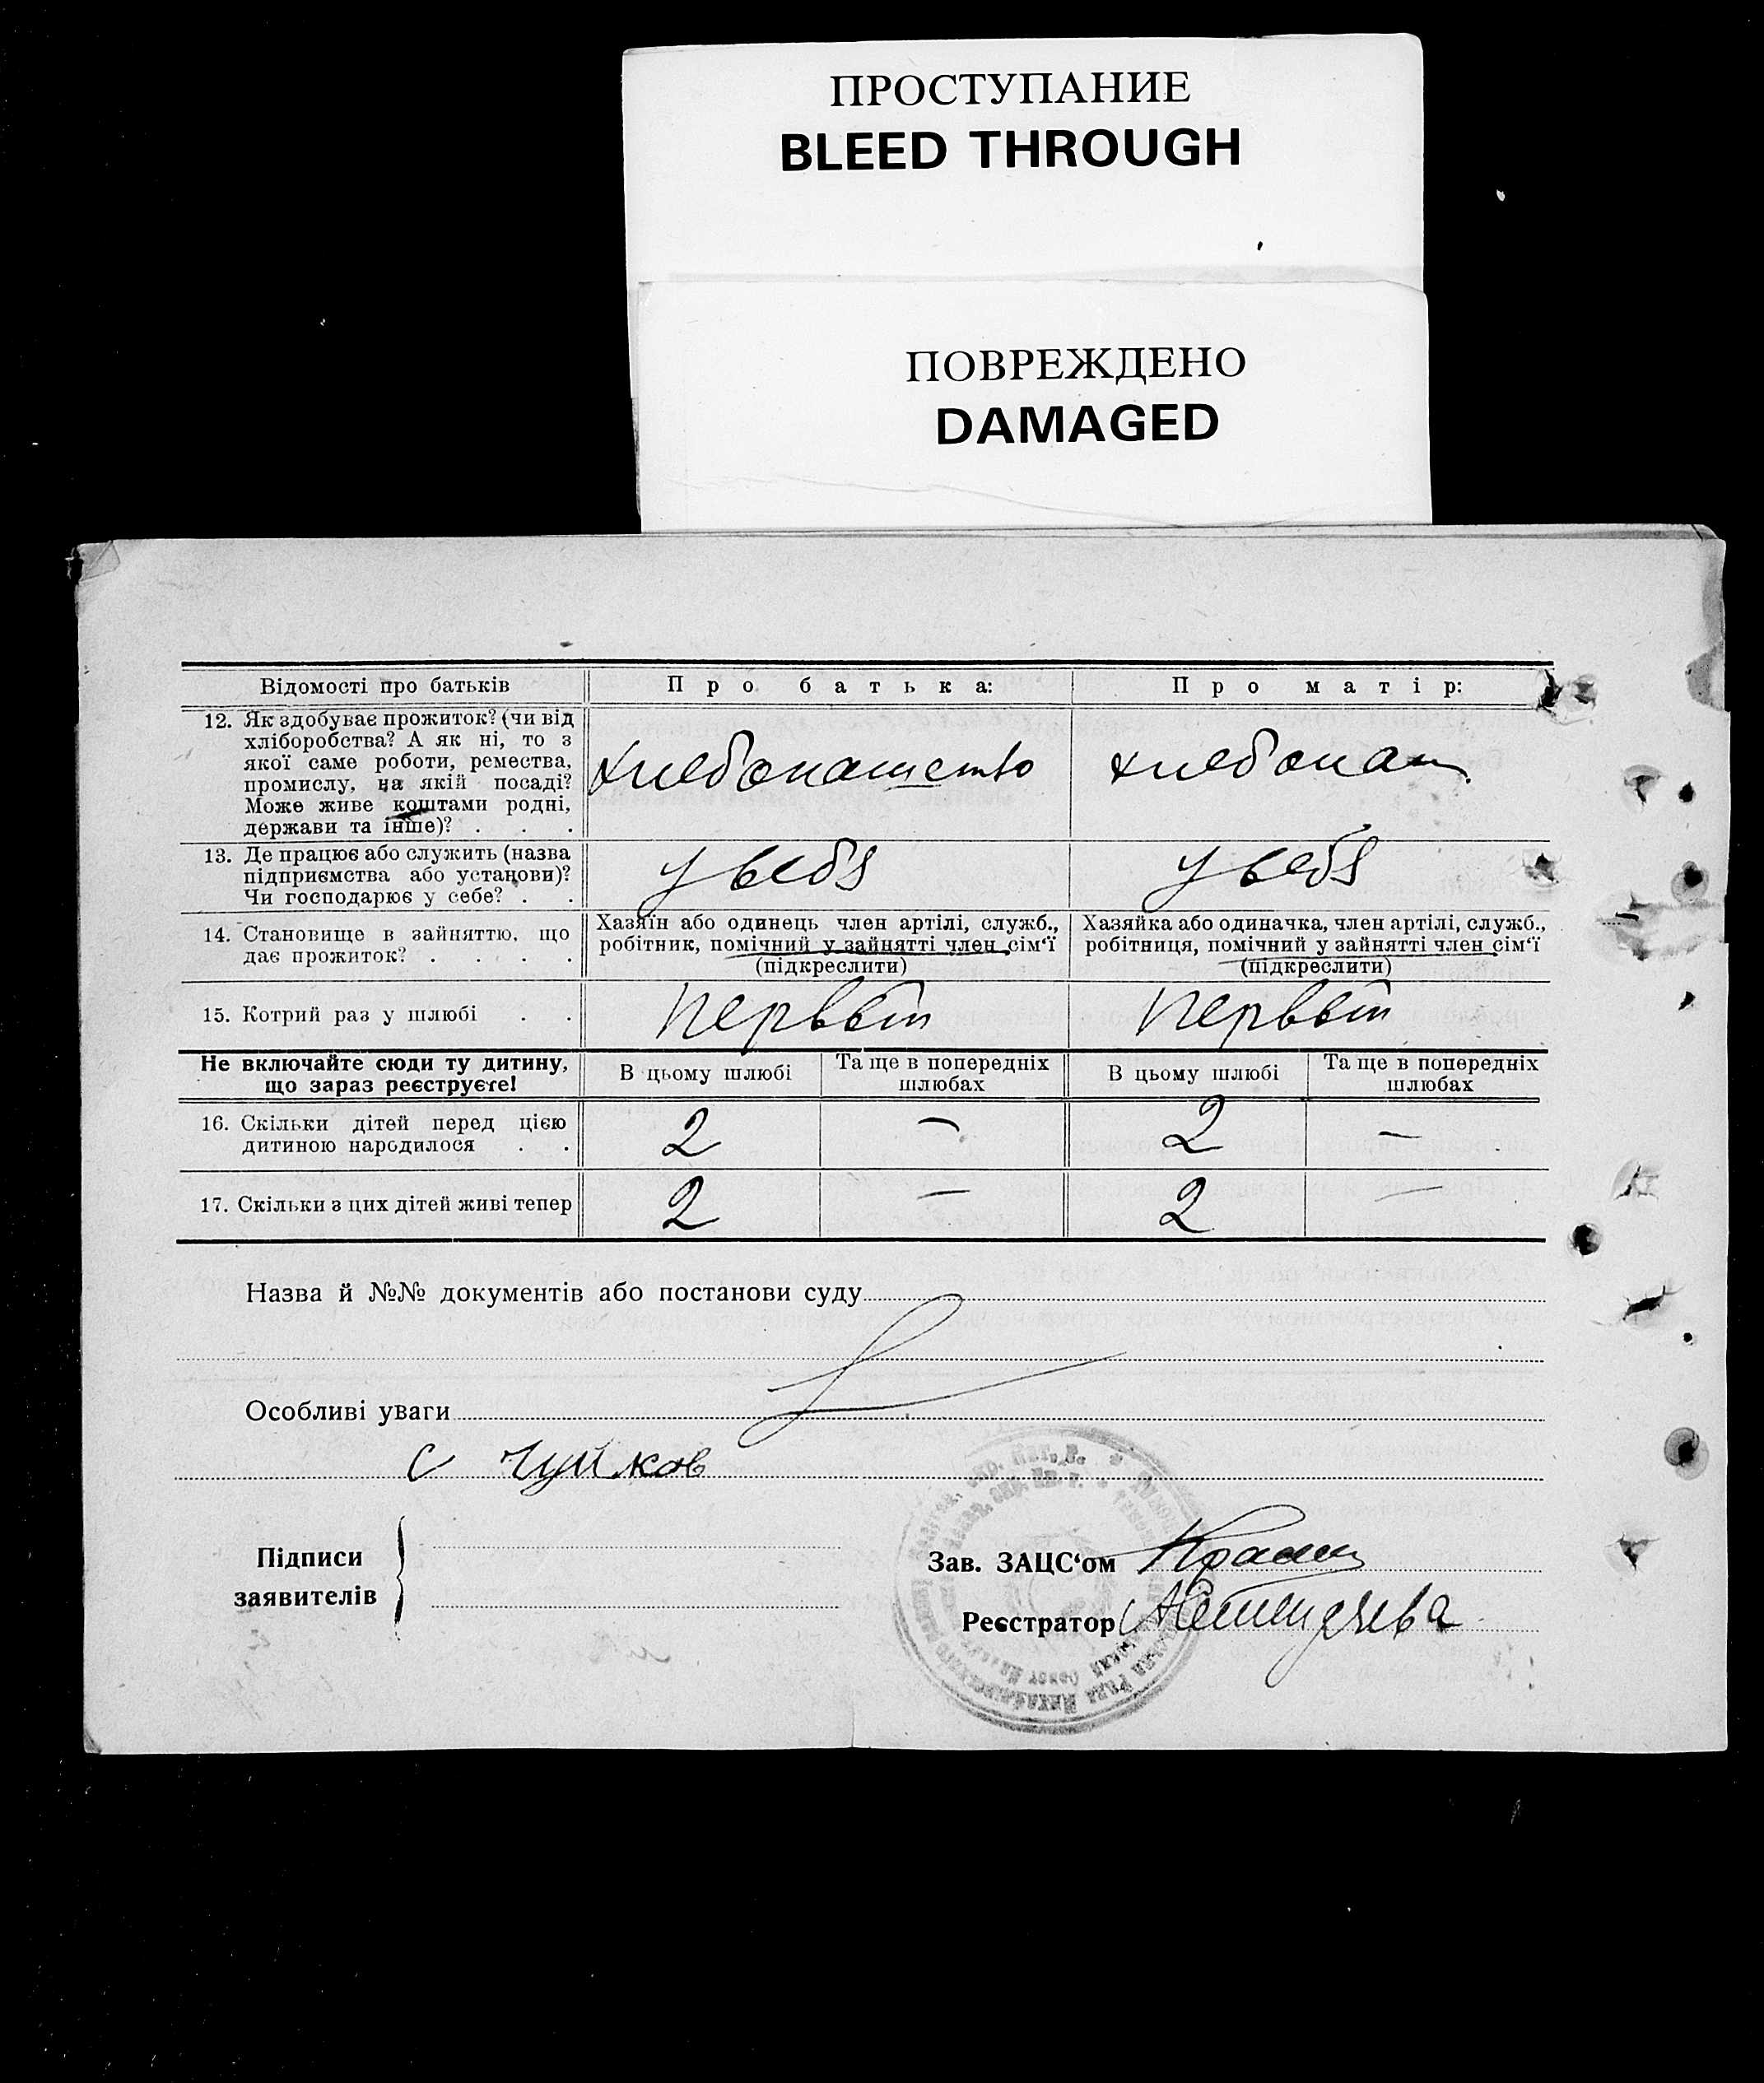 ПРОСТУПАНИЕ
BLEED THROUGH
ПОВРЕЖДЕНО
DAMAGED
Відомості про батьків
Про батька:
Про матір:
12. Як здобуває прожиток? (чи від
хліборобства? А як ні, то з
якої саме роботи, ремества,
промислу, на якій посаді?
Може живе коштами родні,
держави та інше)? . . .
хлебопашество
хлебопаш.
13. Де працює або служить (назва
підприємства або установи)?
Чи господарює у себе? . .
у себя
у себя
14. Становище в зайняттю, що
дає прожиток? . . . .
Хазяїн або одинець член артілі, служб.,
робітник, помічний у зайнятті член сім‘ї
(підкреслити)
Хазяйка або одиначка, член артілі, служб.,
робітниця, помічний у зайнятті член сім‘ї
(підкреслити)
15. Котрий раз у шлюбі . .
первый
первый
Не включайте сюди ту дитину,
що зараз реєструєте!
В цьому шлюбі
Та ще в попередніх
шлюбах
В цьому шлюбі
Та ще в попередніх
шлюбах
16. Скільки дітей перед цією
дитиною народилося . .
2
—
2
—
17. Скільки з цих дітей живі тепер
2
—
2
—
Назва й №№ документів або постанови суду
Особливі уваги
с Чуйков
Підписи
заявителів
Зав. ЗАЦС‘ом
Реєстратор